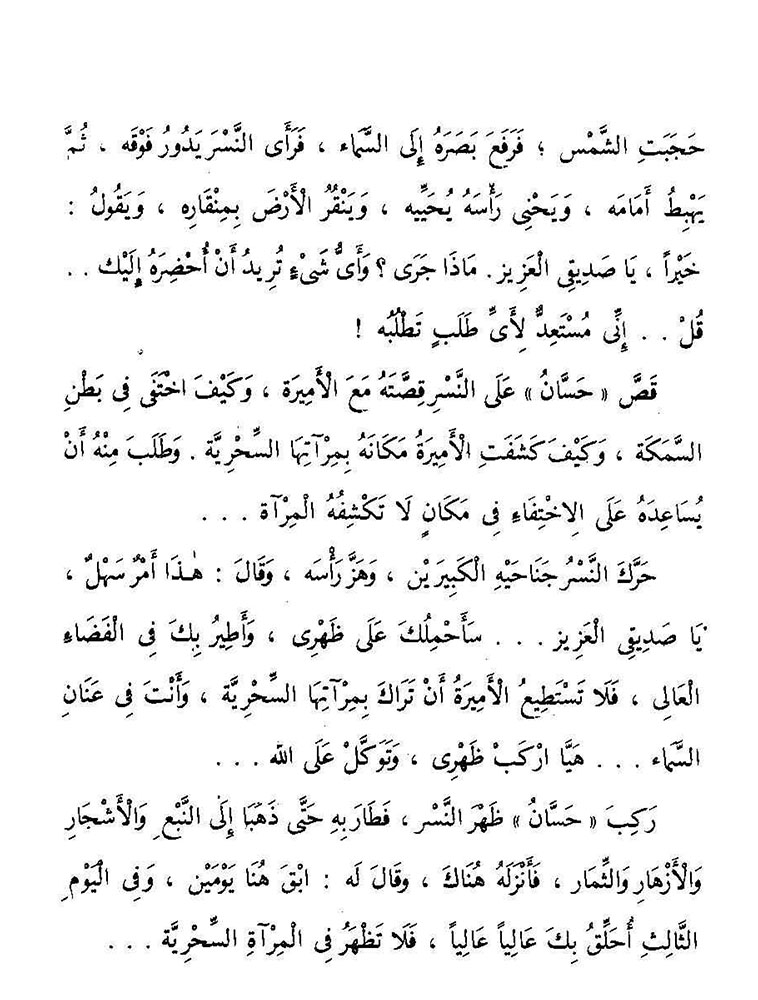 حَجَبَتِ الشَّمْس ؛ فَرَفَعَ بَصَرَهُ إِلَى السَّمَاء ، فَرَأَى النَّسْرَ يَدُورُ فَوْقَه ، ثُمَّ
يَهْبِطُ أَمَامَه ، وَيَحْنِى رَأْسَهُ يُحَيِّيه ، وَيَنْقُرُ الْأَرْضَ بِمِنْقَارِه ، وَيَقُولُ :
خَيْراً ، يَا صَدِيقِى الْعَزِيز. مَاذَا جَرَى ؟ وَأَىُّ شَىْءٍ تُرِيدُ أَنْ أُحْضِرَهُ إِلَيْك . .
قُلْ . . إِنِّى مُسْتَعِدٌّ لِأَىِّ طَلَبٍ تَطْلُبُه !
قَصَّ « حَسَّانُ » عَلَى النَّسْرِ قِصَّتَهُ مَعَ الْأَمِيرَة ، وَكَيْفَ اخْتَفَى فِى بَطْنِ
السَّمَكَة ، وَكَيْفَ كَشَفَتِ الْأَمِيرَةُ مَكَانَهُ بِمِرْآتِهَا السِّحْرِيَّة . وَطَلَبَ مِنْهُ أَنْ
يُسَاعِدَهُ عَلَى الِاخْتِفَاءِ فِى مَكَانٍ لَا تَكْشِفُهُ الْمِرْآة . . .
حَرَّكَ النَّسْرُ جَنَاحَيْهِ الْكَبِيرَيْن ، وَهَزَّ رَأْسَه ، وَقَالَ : هٰذَا أَمْرٌ سَهْلٌ ،
يَا صَدِيقِى الْعَزِيز . . . سَأَحْمِلُكَ عَلَى ظَهْرِى ، وَأَطِيرُ بِكَ فِى الْفَضَاءِ
الْعَالِى ، فَلَا تَسْتَطِيعُ الْأَمِيرَةُ أَنْ تَرَاكَ بِمِرْآتِهَا السِّحْرِيَّة ، وَأَنْتَ فِى عَنَانِ
السَّمَاء . . . هَيَّا ارْكَبْ ظَهْرِى ، وَتَوَكَّلْ عَلَى الله . . .
رَكِبَ « حَسَّانُ » ظَهْرَ النَّسْر ، فَطَارَ بِهِ حَتَّى ذَهَبَا إِلَى النَّبْعِ وَالْأَشْجَارِ
وَالْأَزْهَارِ وَالثِّمَار ، فَأَنْزَلَهُ هُنَاكَ ، وَقَالَ لَه : ابْقَ هُنَا يَوْمَيْن ، وَفِى الْيَوْمِ
الثَّالِثِ أُحَلِّقُ بِكَ عَالِياً عَالِياً ، فَلَا تَظْهَرُ فِى الْمِرْآةِ السِّحْرِيَّة . . .